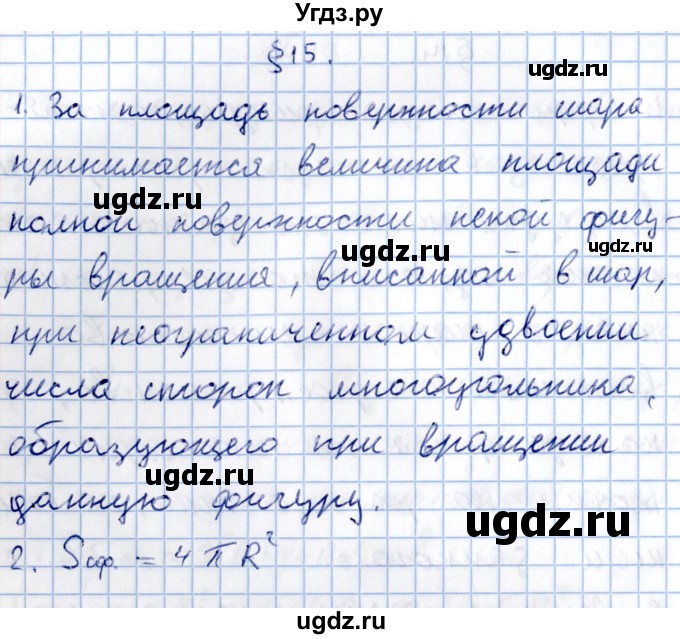 Угдз.ру
§15.
1. За площадь поверхности шара
принимается величина площади
ugdz.ru
ugdz.ru
полной поверхности некой фигу-
ugdz.ru
ugdz.ru
ры вращения, вписанной в шар,
при неограниченном удвоении
числа сторон многоугольника,
образующего при вращении
ugdz.ru
данную фигуру.
ugdz.ru
2. Sсф. = 4πR²
ugdz.ru
ugdz.ru